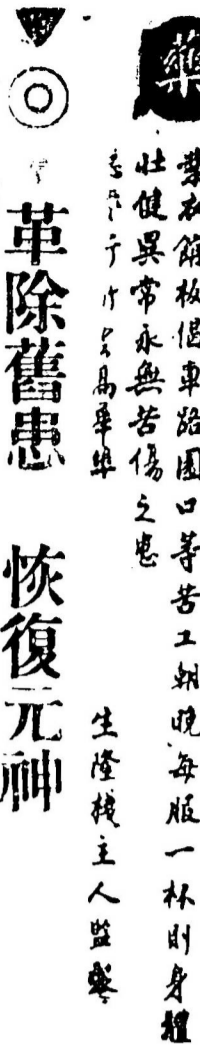 藥
衣館板侶車路園口等苦工朝晚每服一杯則身體
壯健異常永無苦傷之患
生隆棧主人監製
革除舊患 恢復元神